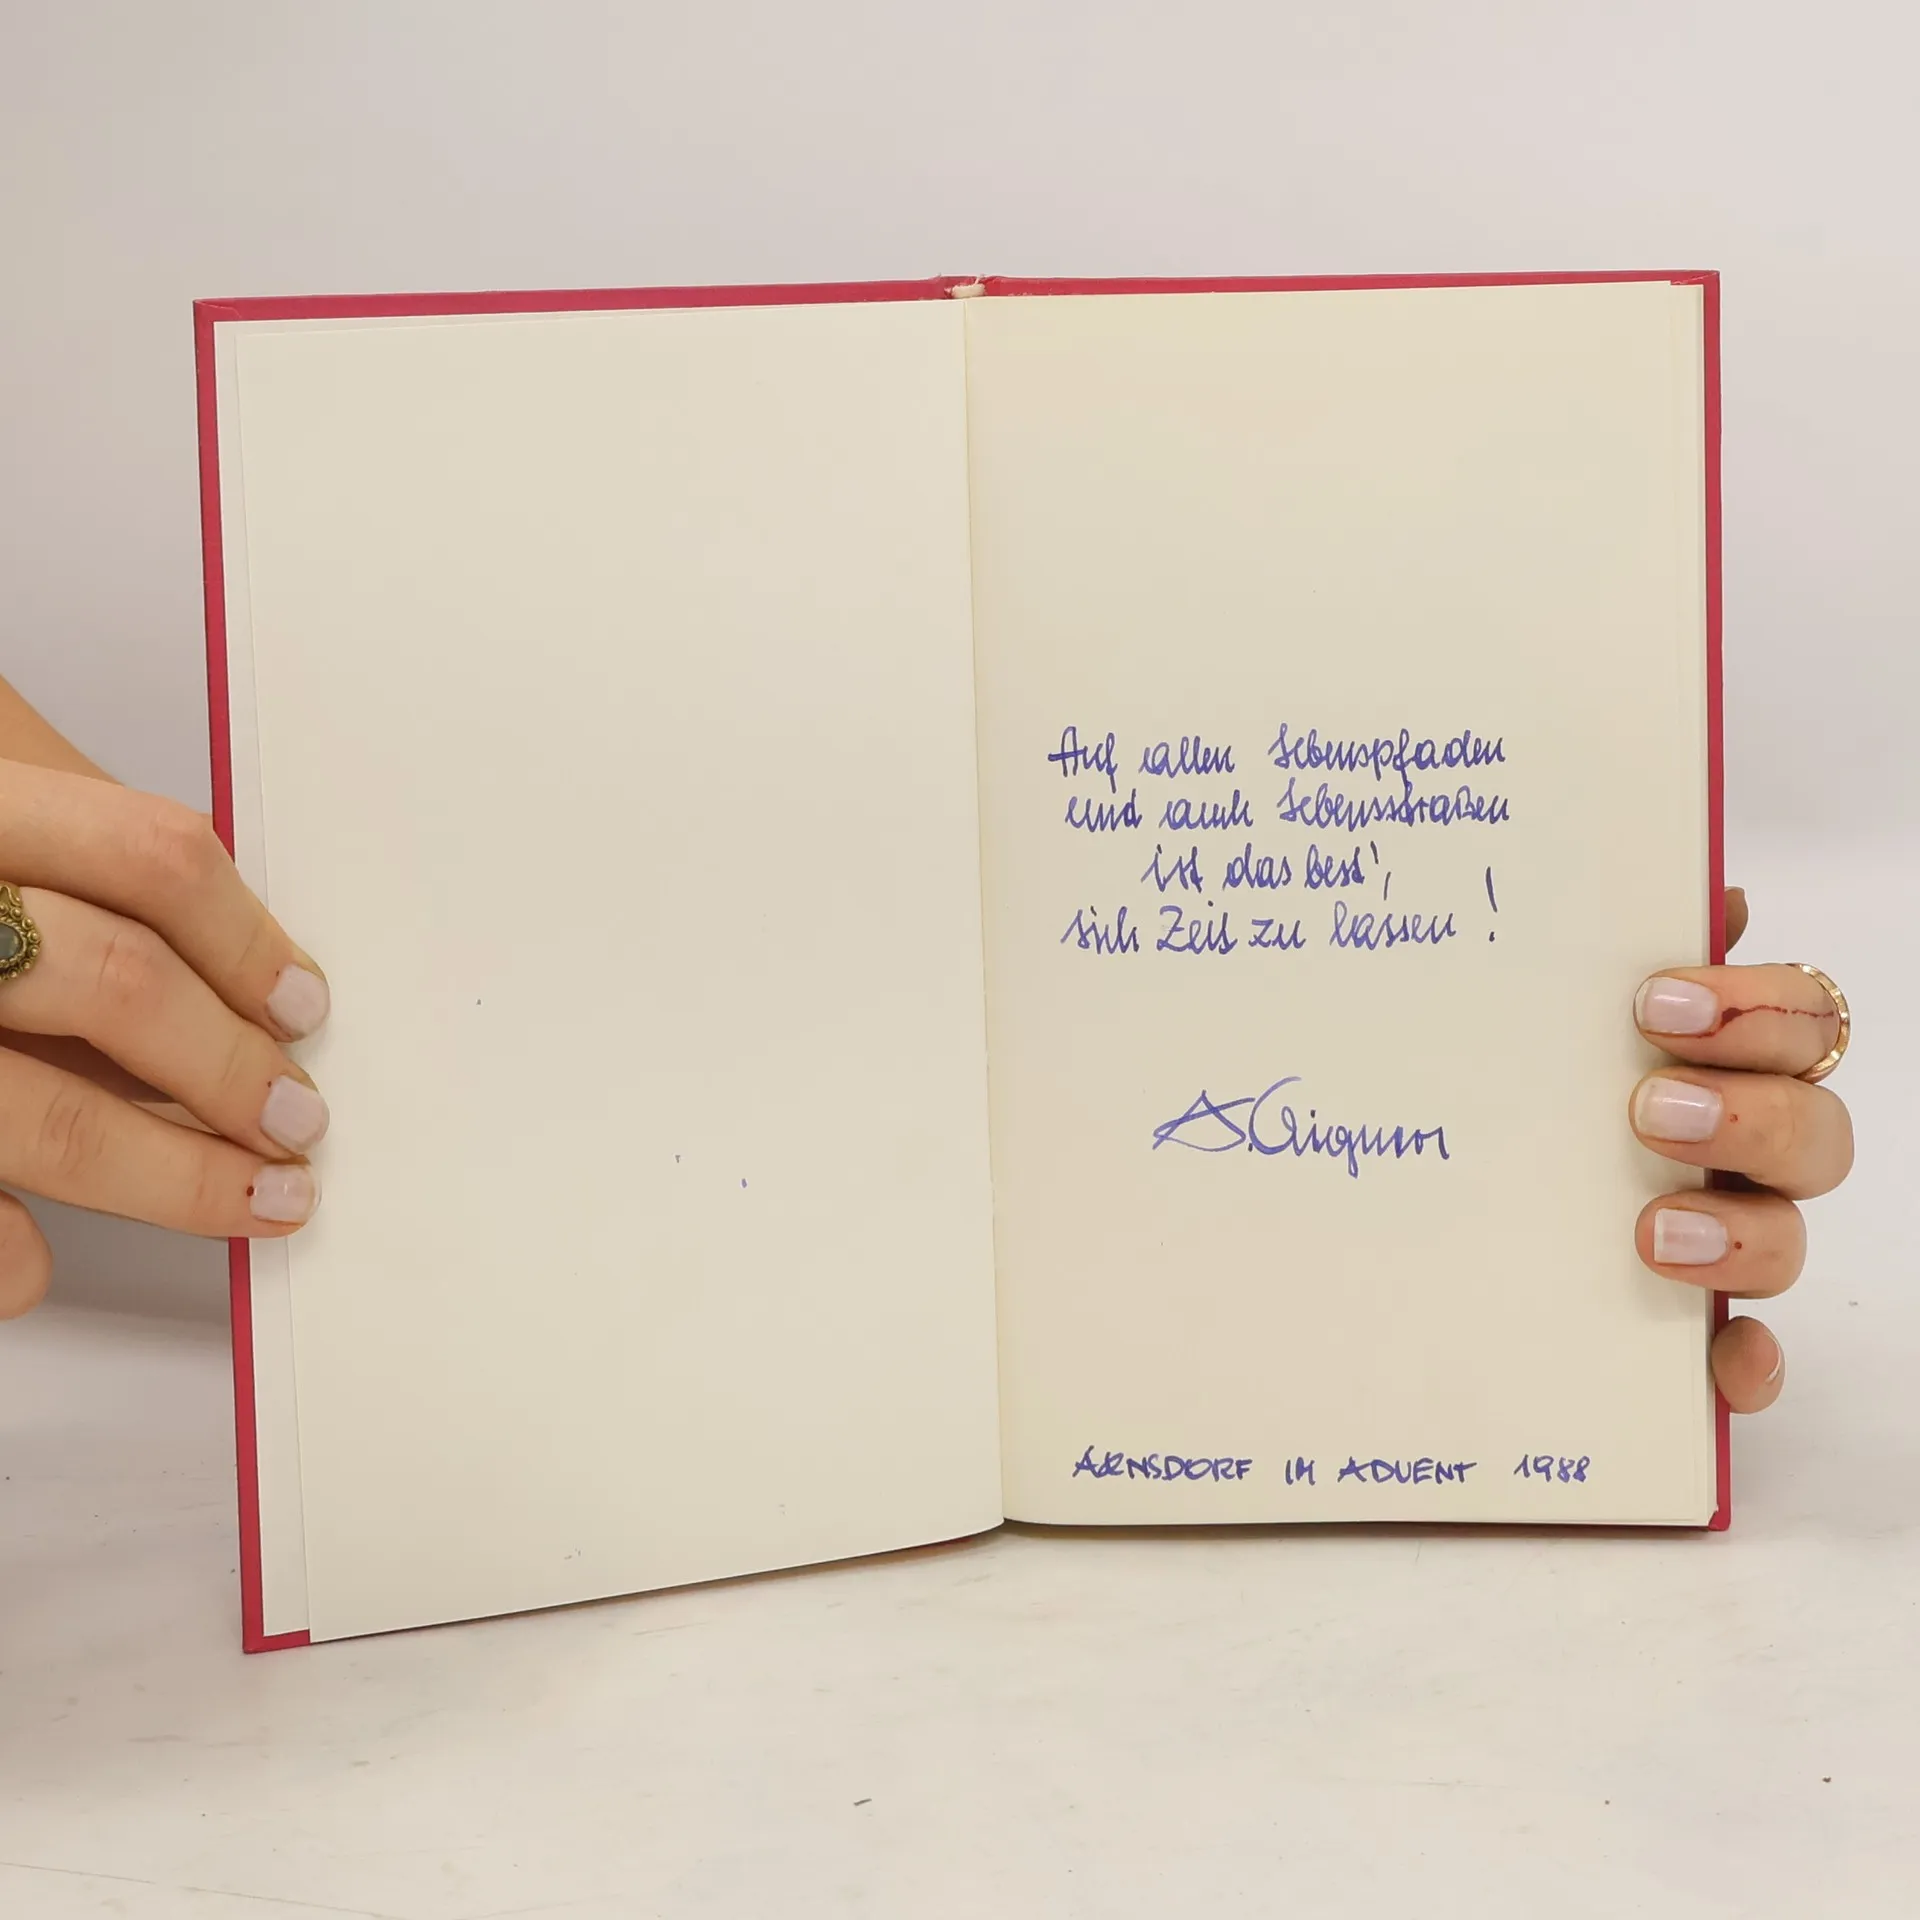 Auf allen Lebenspfaden
und auch Lebensstraßen
ist das best',
sich Zeit zu lassen!
A. Aigner
ARNSDORF IM ADVENT 1988